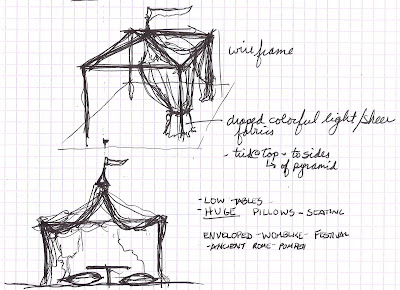 wireframe
draped colorful light/sheer
fabrics
- tied @ top - to sides
↳ of pyramid
- LOW TABLES
- HUGE PILLOWS - SEATING
ENVELOPED - WOMBLIKE - FESTIVAL
- ANCIENT ROME - POMPEII